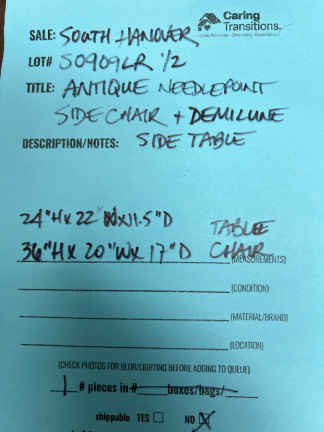 Caring
Transitions
SALE: SOUTH HANOVER
LOT# S0909LR 1/2
TITLE: ANTIQUE NEEDLEPOINT
SIDE CHAIR + DEMILUNE
DESCRIPTION/NOTES: SIDE TABLE
24"H x 22" W x 11.5"D TABLE
36"H x 20"W x 17"D CHAIR (MEASUREMENTS)
(CONDITION)
(MATERIAL/BRAND)
(LOCATION)
(CHECK PHOTOS FOR BLUR/EDITING BEFORE ADDING TO QUEUE)
1 # pieces in # boxes/bags/
shippable YES NO